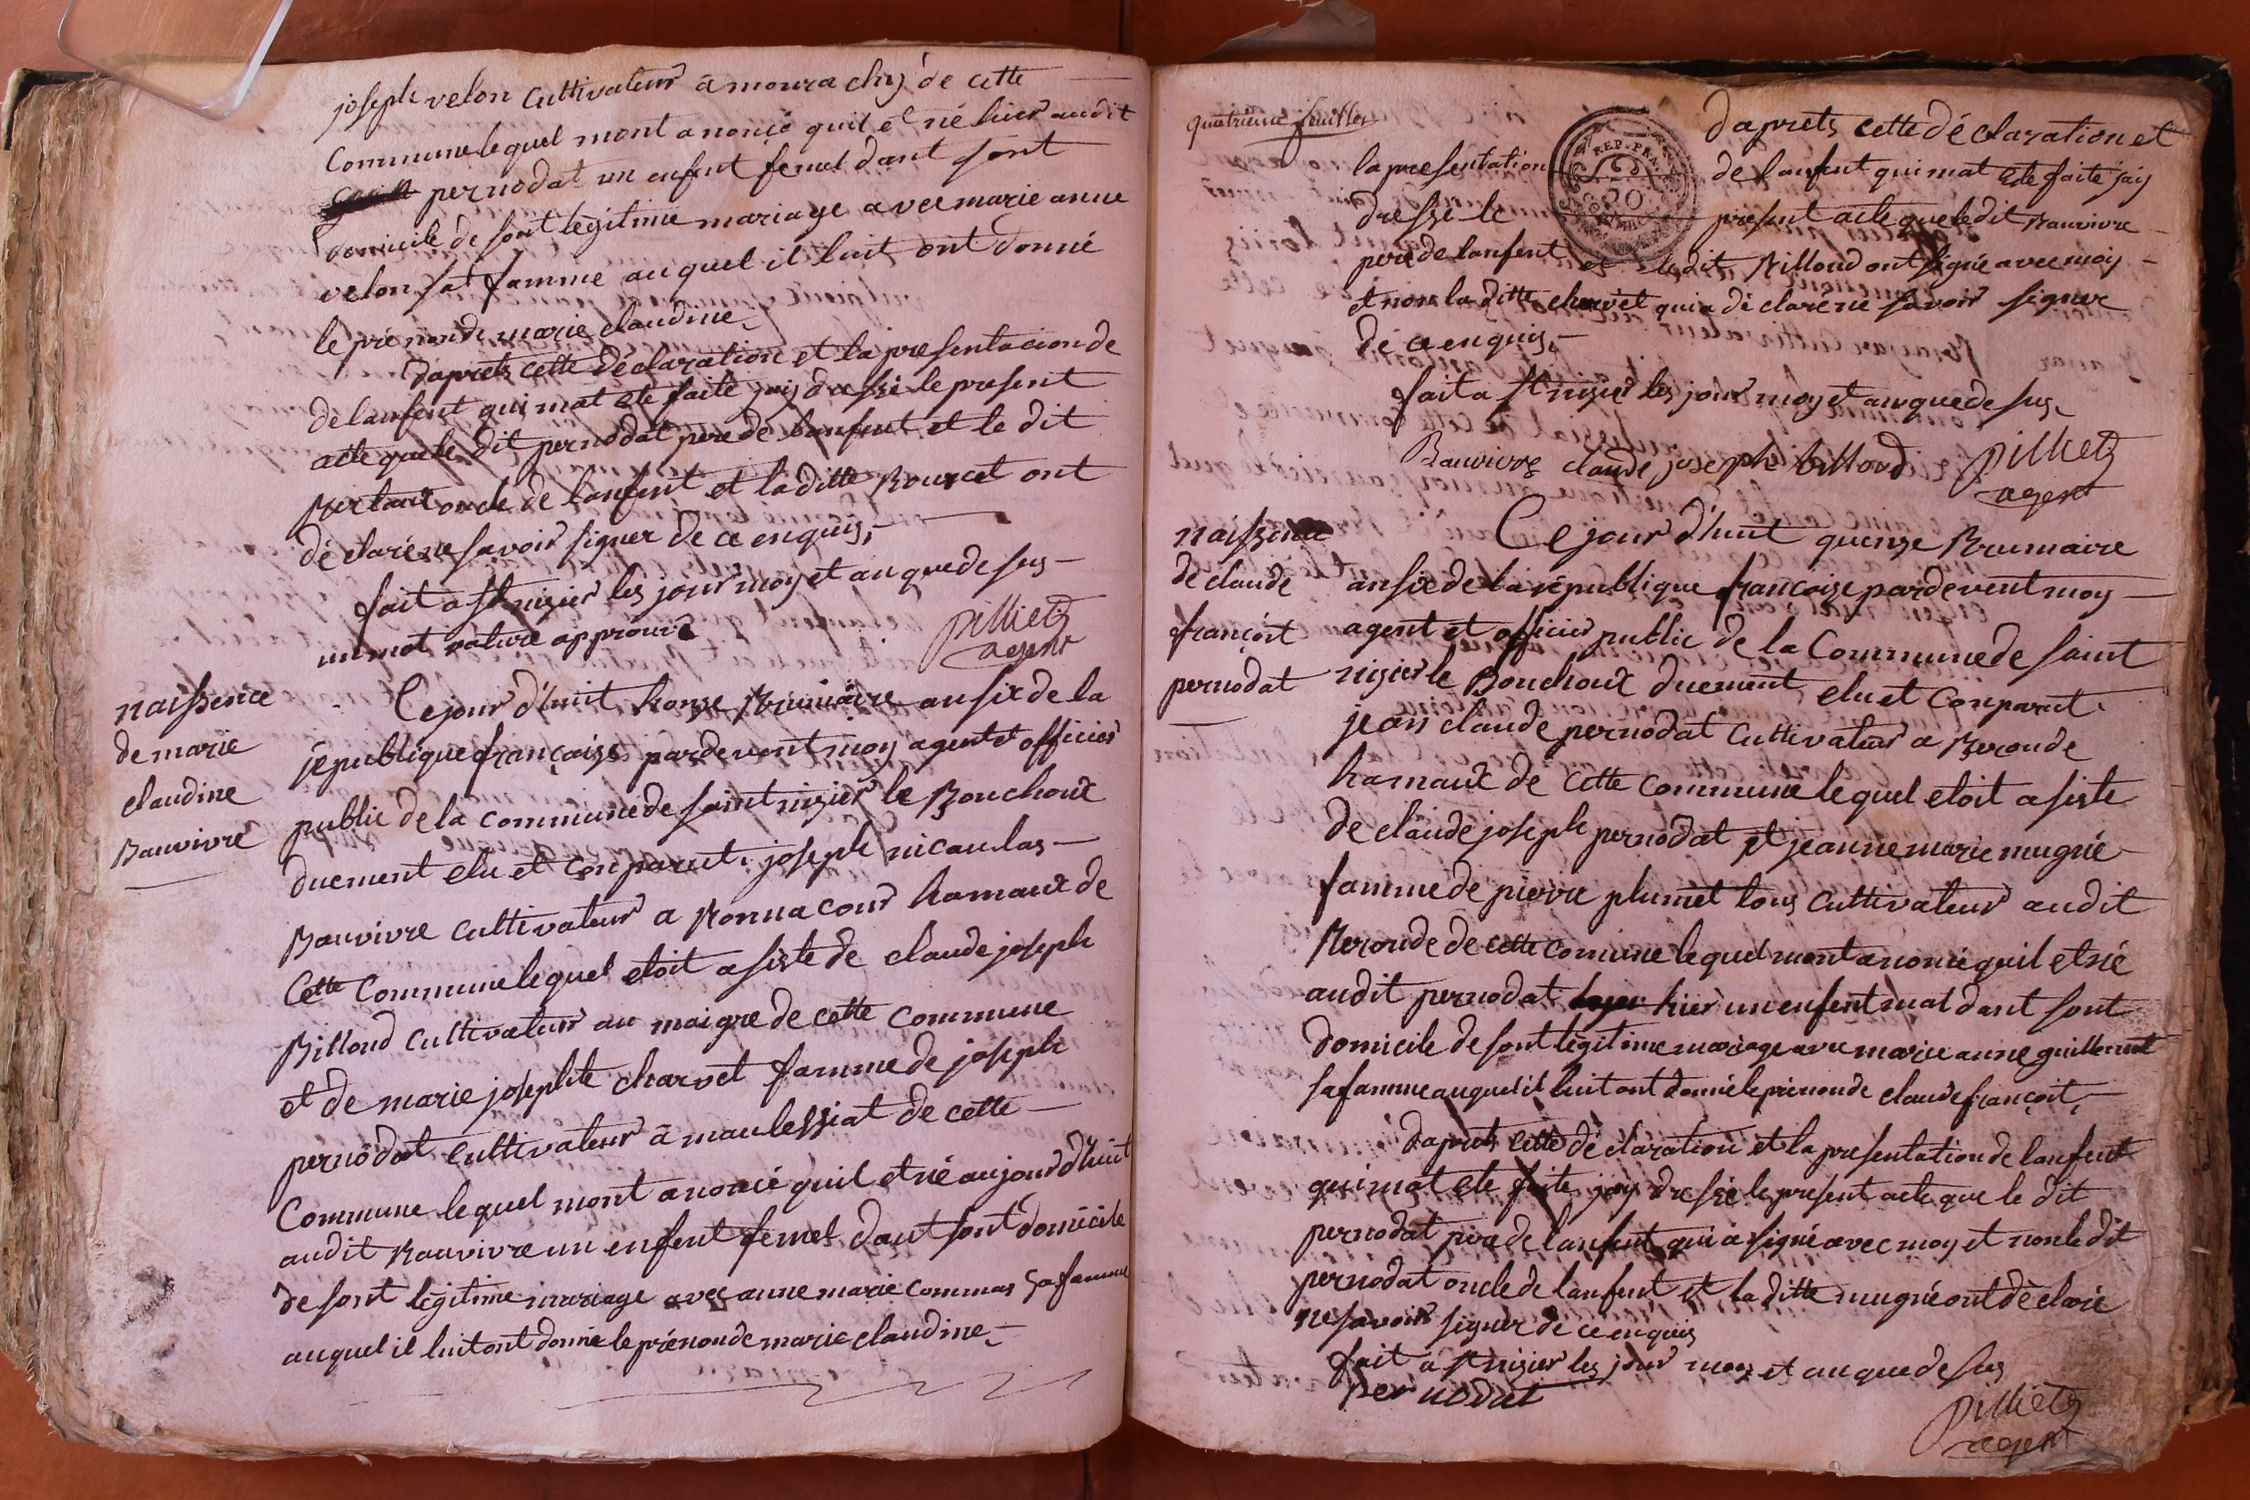 joseph velon Cultivateur a moura chy de cette
Commune lequel mont anoncé quil et né hier audit
pernodat un enfent femel dant sont
domicile de sont legitime mariage avec marie anne
velon sat famme auquel il luit ont donné
le prénonde marie claudine
daprets cette déclaration et la presentacion de
de lanfent qui mat ete faite jaij dressé le present
acte que le dit pernodat pere de lanfent et le dit
oncle de lanfent et la ditte Bourcet ont
déclaré ne savoir signer de ce enquis,
fait a St nizier les jour moy et an que de sus
un mot rature approuvé
Pilliet
agent
naissence
de marie
claudine
Bauvivre
Ce jour d'huit honze Brumaire an six de la
république française pardevent moy agent et officier
public de la commune de saint nizier le Bouchoux
duement elu et conparut joseph nicaulas
Bauvivre Cultivateur a Bonnacour hamaux de
Cette Commune lequel etoit asiste de claude joseph
Billoud Cultivateur au maigre de cette Commune
et de marie josephte charvet famme de joseph
pernodat Cultivateur a maulessiat de cette
Commune lequel mont anoncé quil et né aujourd'huit
audit Bauvivre un enfent femel dant sont domicile
de sont legitime mariage avec anne marie commas sa famme
auquel il luit ont donné le prénonde marie claudine
quatrieme feuillet
REP. FRA.
daprets cette déclaration et
la presentation de lanfent qui mat ete faite jaij
dressé le present acte que le dit Bauvivre
pere de lanfent et ledit Billoud ont signé avec moy
et non la ditte charvet qui a déclaré ne savoir signer
de ce enquis,
fait a St nizier les jour moy et an que de sus
Bauvivre claude joseph billoud Pilliet
agent
naissence
de claude
françoit
pernodat
Ce jour d'huit quenze Brumaire
an six de la république francaise pardevent moy
agent et officier public de la Commune de saint
nizier le Bouchoux duement elu et Conparut
jean claude pernodat Cultivateur a Beronde
hamaux de Cette Commune lequel etoit asiste
de claude joseph pernodat et jeanne marie mugnié
famme de pierre plumet tous Cultivateur audit
Beronde de cette comune lequel mont anoncé quil et né
audit pernodat hier un enfent mal dant sont
domicile de sont legitime mariage avec marie anne guillermet
sa famme auquel il luit ont donné le prénonde claude françoit,
daprets cette déclaration et la presentation de lanfent
qui mat ete faite jaij dressé le present acte que le dit
pernodat pere de lanfent qui a signé avec moy et non le dit
pernodat oncle de lanfent et la ditte mugnié ont déclaré
ne savoir signer de ce enquis
fait a St nizier les jour moy et an que de sus
pernodat
Pilliet
agent